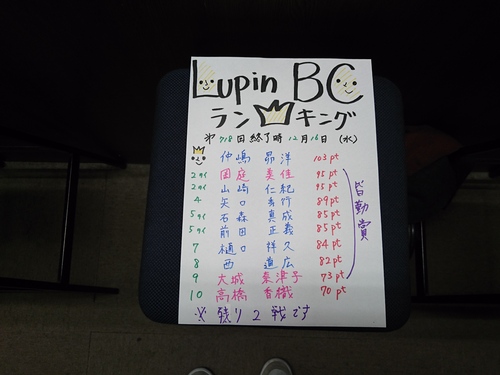 Lupin BC
ランキング
第718回終了時 12月16日 (水)
仲嶋 昴洋 103pt
2タイ 国庭 美佳 95pt
2タイ 山崎 仁紀 95pt
4 矢口 秀行 89pt
5タイ 石森 真成 85pt
5タイ 前田 正義 85pt
7 樋口 祥久 84pt
8 西 道広 82pt
9 大城 奈津子 73pt
10 高橋 香織 70pt
皆勤賞
※残り2戦です